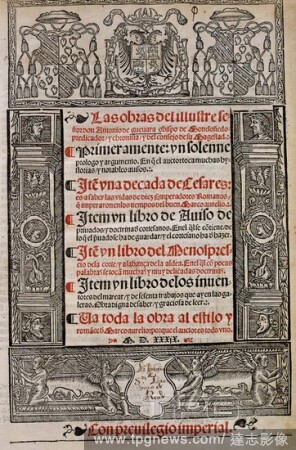 Las obras del illustre se
ñor don Antonio de gueuara obispo de Mondoñedo
predicador / y chronista / y del consejo de su Magestad.
¶ Primeramente: vn solenne
prologo y argumento. En q̃l auctor toca muchas hy
storias / y notables auisos.
¶ Itẽ vna decada de Cesares:
es a saber las vidas de diez Emperadores Romanos /
q̃ imperaron en los tiempos del buen Marco aurelio.
¶ Item vn libro de Auiso de
priuados / y doctrina de cortesanos.
¶ Itẽ vn libro del Menospre
cio dela corte / y alabança dela aldea. Enel q̃l cõ pocas
palabras se tocã muchas y muy delicadas doctrinas.
¶ Item vn libro delos inuen
tores del marear / y de sesenta trabajos que ay en las ga
leras. Obra digna de saber / y graciosa de leer.
¶ Va toda la obra al estilo y
romãce de Marco aurelio: porque el auctor es todo vno.
M. D. XXXIX.
Con preuilegio imperial.
www.tpgnews.com / 達志影像